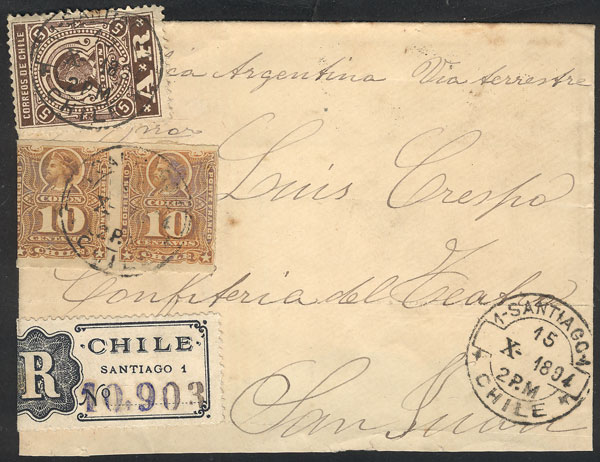 CORREOS DE CHILE
5 5
A·R
Argentina Via terrestre
COLON COLON
10 10
CENTAVOS
CHILE
Luis Crespo
Confiteria del Teatro
San Juan
R
CHILE
SANTIAGO 1
No 10.903
1-SANTIAGO-1
15
X·1894
2 P.M
CHILE